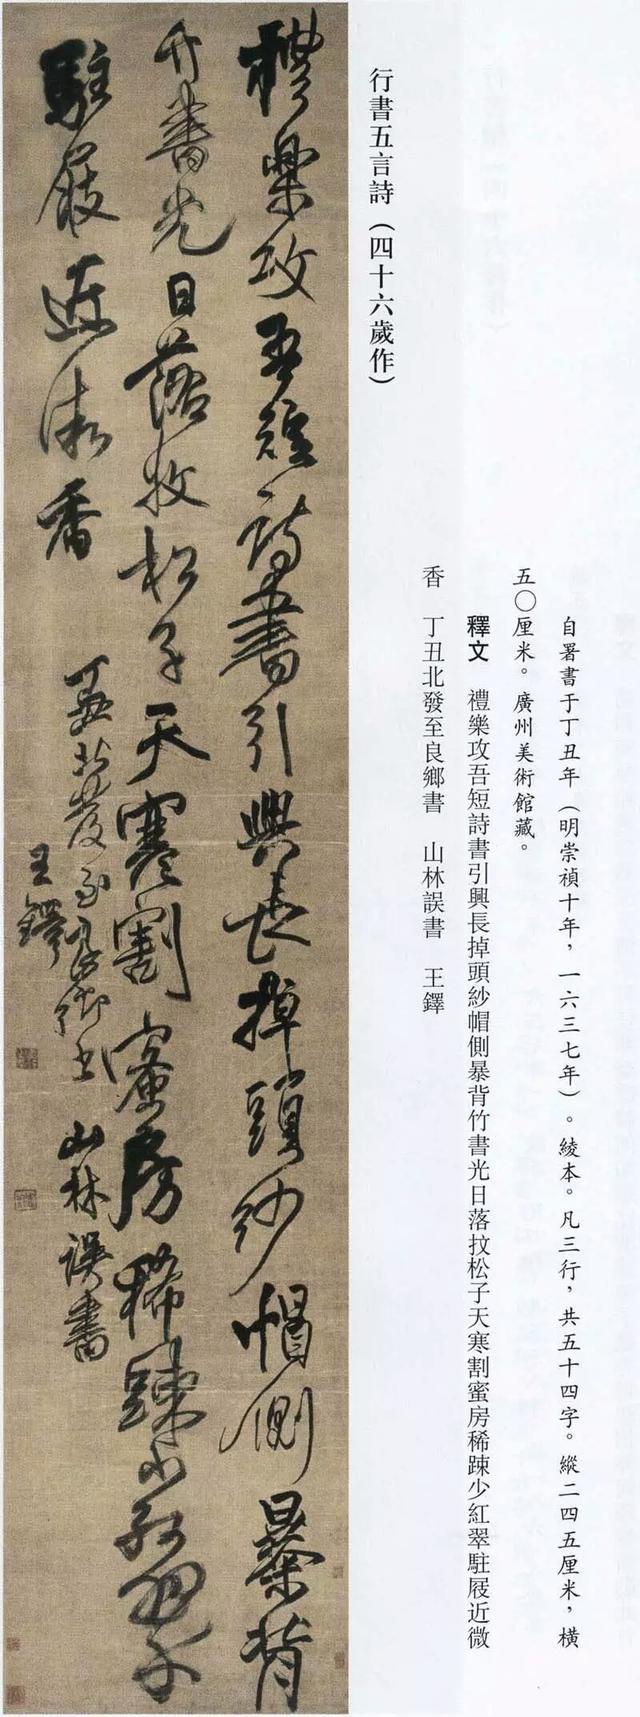 行書五言詩（四十六歲作）
自署書于丁丑年（明崇禎十年，一六三七年）。綾本。凡三行，共五十四字。縱二四五厘米，橫
五〇厘米。廣州美術館藏。
釋文　禮樂攻吾短詩書引興長掉頭紗帽側暴背竹書光日落抆松子天寒割蜜房稀踈少紅翠駐屐近微
香　丁丑北發至良鄉書　山林誤書　王鐸
禮樂攻吾短詩書引興長掉頭紗帽側暴背
竹書光日落收松子天寒割蜜房稀踈少紅翠
駐屐近微香
丁丑北發至良鄉書　山林誤書
王鐸